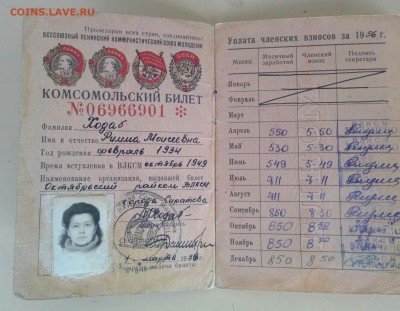 COINS.LAVE.RU
Пролетарии всех стран, соединяйтесь!
ВСЕСОЮЗНЫЙ ЛЕНИНСКИЙ КОММУНИСТИЧЕСКИЙ СОЮЗ МОЛОДЕЖИ
КОМСОМОЛЬСКИЙ БИЛЕТ
№06966901
Фамилия Ходаб
Имя и отчество Римма Моисеевна
Год рождения февраль 1934
Время вступления в ВЛКСМ октябрь 1949
Наименование организации, выдавшей билет
Октябрьский райком ВЛКСМ
города Саратова
1 марта 1956
Уплата членских взносов за 1956 г.
Месяц Месячный заработок Членский взнос Подпись секретаря
Январь
Февраль
Март
Апрель 550 5-50
Май 530 5-30
Июнь 549 5-49
Июль 711 7-11
Август 711 7-11
Сентябрь 850 8-50
Октябрь 850 8-50
Ноябрь 850 8-50
Декабрь 850 8-50